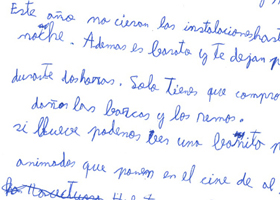 Este año no cieran las instalaciones hast
noche. Ademas es barato y te dejan
durante dos horas. Solo Tienes que compro
daños las barcas y los remos.
si llueve podemos ver una bonita
animados que ponen en el cine de al